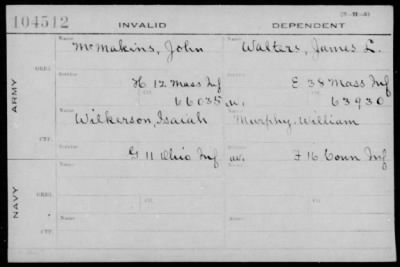 104512 INVALID DEPENDENT
Name Name
McMakins, John Walters, James L.
ORIG. Service Service
H 12 Mass Inf E 38 Mass Inf
ARMY 66035 W. 63930
Name Name
Wilkerson, Isaiah Murphy, William
CTF. Service Service
G 11 Ohio Inf F 16 Conn Inf
Name Name
ORIG.
NAVY
Name Name
CTF.